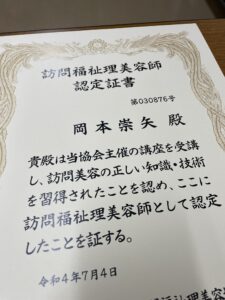 訪問福祉理美容師
認定証書
第030876号
岡本崇矢 殿
貴殿は当協会主催の講座を受講
し、訪問美容の正しい知識・技術
を習得されたことを認め、ここに
訪問福祉理美容師として認定
したことを証する。
令和4年7月4日